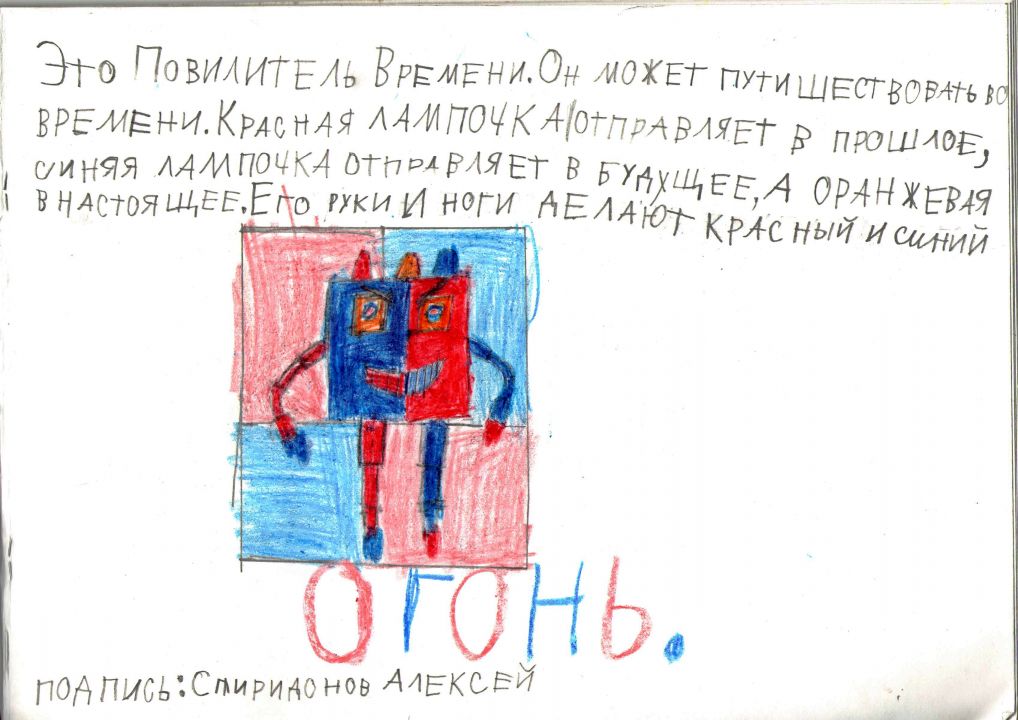 Это Повилитель Времени. Он может путишествовать во
времени. Красная лампочка отправляет в прошлое,
синяя лампочка отправляет в будущее, а оранжевая
в настоящее. Его руки и ноги делают красный и синий
огонь.
подпись: Спиридонов Алексей